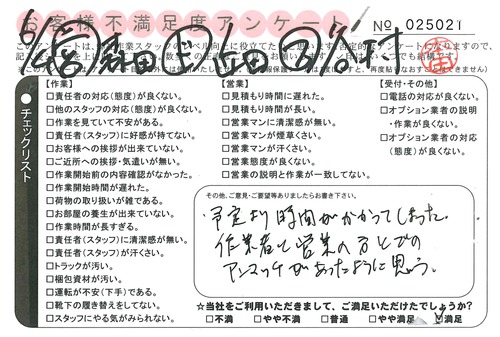 お客様不満足度アンケート
No 025021
チェックリスト
【作業】
□責任者の対応(態度)が良くない。
□他のスタッフの対応(態度)が良くない。
□作業を見ていて不安がある。
□責任者(スタッフ)に好感が持てない。
□お客様への挨拶が出来ていない。
□ご近所への挨拶・気遣いが無い。
□作業開始前の内容確認がなかった。
□作業開始時間が遅れた。
□荷物の取り扱いが雑である。
□お部屋の養生が出来ていない。
□作業時間が長すぎる。
□責任者(スタッフ)に清潔感が無い。
□責任者(スタッフ)が汗くさい。
□トラックが汚い。
□梱包資材が汚い。
□運転が不安(下手)である。
□靴下の履き替えをしてない。
□スタッフにやる気がみられない。
【営業】
□見積もり時間に遅れた。
□見積もり時間が長い。
□営業マンに清潔感が無い。
□営業マンが煙草くさい。
□営業マンが汗くさい。
□営業態度が良くない。
□営業の説明と作業が一致してない。
【受付・その他】
□電話の対応が良くない。
□オプション業者の説明
・作業が良くない。
□オプション業者の対応
(態度)が良くない。
その他、ご意見・ご要望等ありましたらお書き下さい。
予定より時間がかかってしまった。
作業者と営業の方とでの
アンマッチがあったように思う。
☆当社をご利用いただきまして、ご満足いただけたでしょうか?
□不満 □やや不満 □普通 □やや満足 ☑満足